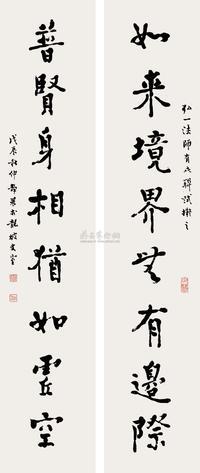 如来境界無有邊際
弘一法師有此聯試擬之
普賢身相猶如虛空
戊辰秋仲靜農於龍坡丈室